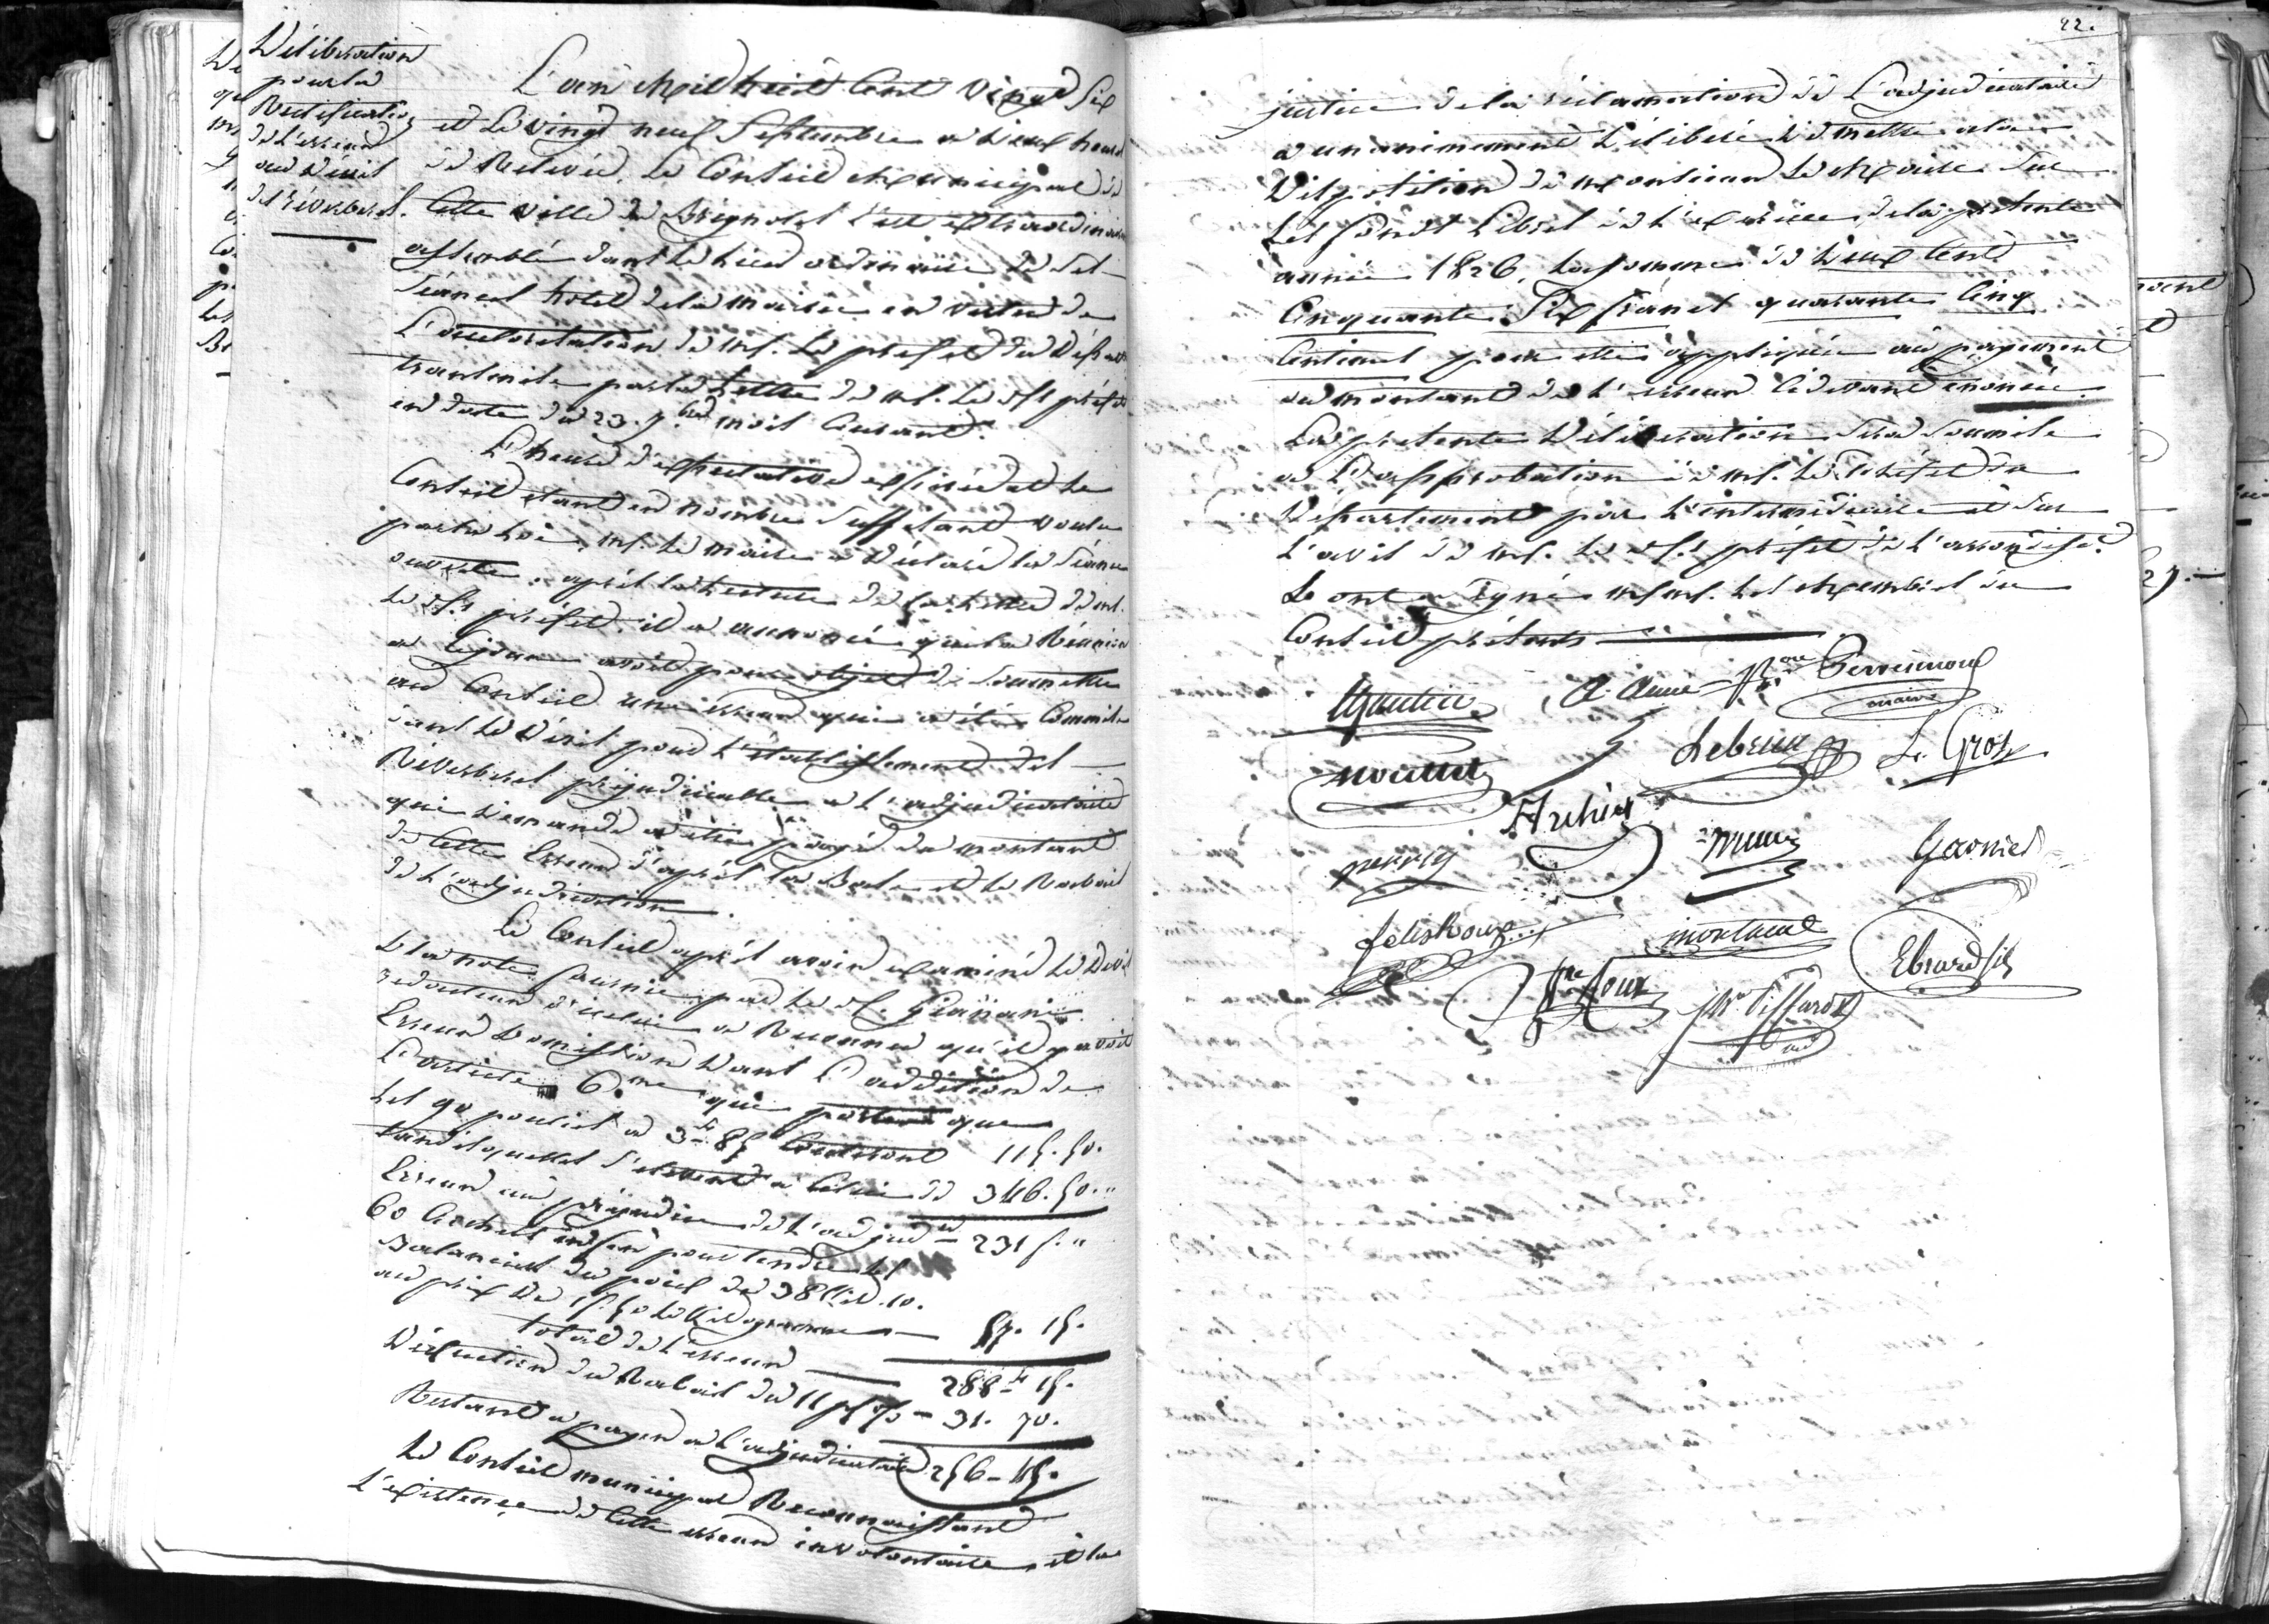 Délibération
pour la
Rectification
de l'erreur
au Dévis
des Réverberes.
L'an Mil huit Cent Vingt Six
et Le vingt neuf Septembre a Deux heures
de Relevée, Le Conseil Municipal de
Cette Ville de Brignoles s'est extraordinairt
assemblé dans le Lieu ordinaire de Ses
Séances hotel de la mairie en vertu de
L'autorisation de Mr. Le prefet du Départ
transmise par la Lettre de Mr. Le Ss prefet
en date du 23. 7.bre mois Courant.
L'heure d'expectative expirée et Le
Conseil etant en nombre Suffisant voulu
par la Loi, Mr. Le maire a Déclaré la Séance
ouverte. après la Lecture de la Lettre de Mr.
Le Ss prefet, il a annoncé que la Réunion
a Ce jour avoit pour objet de Soumettre
au Conseil une erreur qui a été Commise
dans le Dévis pour L'établissement des
Réverberes préjudiciable a L'adjudicataire
qui Demande a être payé du montant
de Cette Erreur d'après la Base et le Rabais
de L'adjudication.
Le Conseil après avoir examiné Le Devis
& la note fournie par le Sr.
redacteur d'icelui a Reconnu qu'il y avoit
Erreur & omission Dans L'addition de
L'article 6.me qui portant que
Les 90 poulies a 3f. 85 Couteront 115. 50.
tandis quelles s'elevent a Celle de 346. 50. "
Erreur au préjudice de L'adjudre 231 f. "
60 Crochets en fer pour tendre les
Balanciers du poids de 38 Kil. 10.
au prix De 1f. 50 le Kilogramme — 57. 15.
total de L'erreur — 288f 15.
Déduction du Rabais de 11 pr % — 31. 70.
Restant a payer a L'adjudicataire 256 - 45.
Le Conseil municipal Reconnaissant
L'existence de Cette erreur involontaire, et la
22.
justice de la réclamation de L'adjudicataire
a unanimement Délibéré De mettre a la
Disposition de Monsieur Le Maire Sur
Les fonds Libres de L'exercice de la présente
année 1826, La Somme de Deux Cent
Cinquante Six francs quarante Cinq
Centimes pour etre appliquée au payement
du montant de L'erreur Cidevant enoncée.
La présente Délibération Sera Soumise
a L'approbation de Mr. Le Préfet du
Département par L'intermédiaire et Sur
L'avis de Mr. Le Ss préfet de L'arrondiset.
& ont Signé MMrs. Les Membres du
Conseil présents
Gautier
Perreimond
maire
Lebrun
Le Gros
noudet
Garnier
felix Roux
montaud
Ebrard fils
Roux